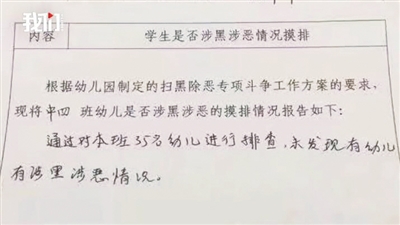 我们
内容 学生是否涉黑涉恶情况摸排
根据幼儿园制定的扫黑除恶专项斗争工作方案的要求，
现将中四 班幼儿是否涉黑涉恶的摸排情况报告如下：
通过对本班35名幼儿进行排查，未发现有幼儿
有涉黑涉恶情况。